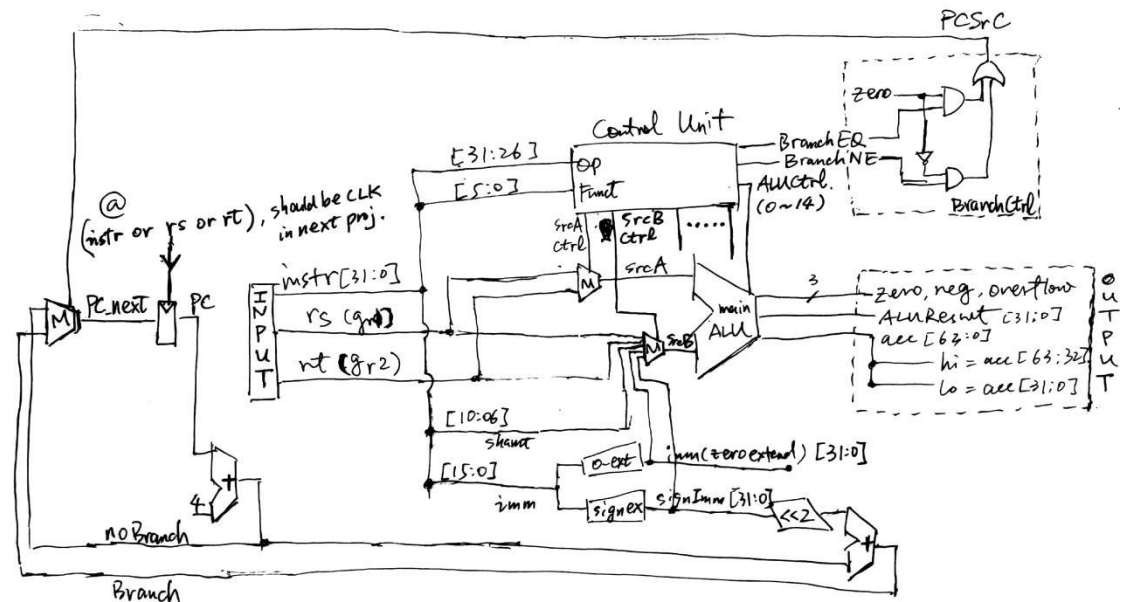 PCSrC
zero
Control Unit
BranchEQ
BranchNE
ALUCtrl.
(0~14)
BranchCtrl
[31:26]
OP
[5:0]
Funct
@
(instr or rs or rt), should be CLK
in next proj.
srcA
ctrl
SrcB
Ctrl
.....
PC_next
PC
M
INPUT
instr[31:0]
rs (gr1)
rt (gr2)
M
srcA
M
srcB
main
ALU
3
zero, neg, overflow
ALUResult [31:0]
acc [63:0]
hi = acc[63:32]
lo = acc[31:0]
OUTPUT
[10:06]
shamt
[15:0]
imm
0-ext
imm(zeroextend) [31:0]
signex
signImm [31:0]
<<2
+
4
+
noBranch
Branch